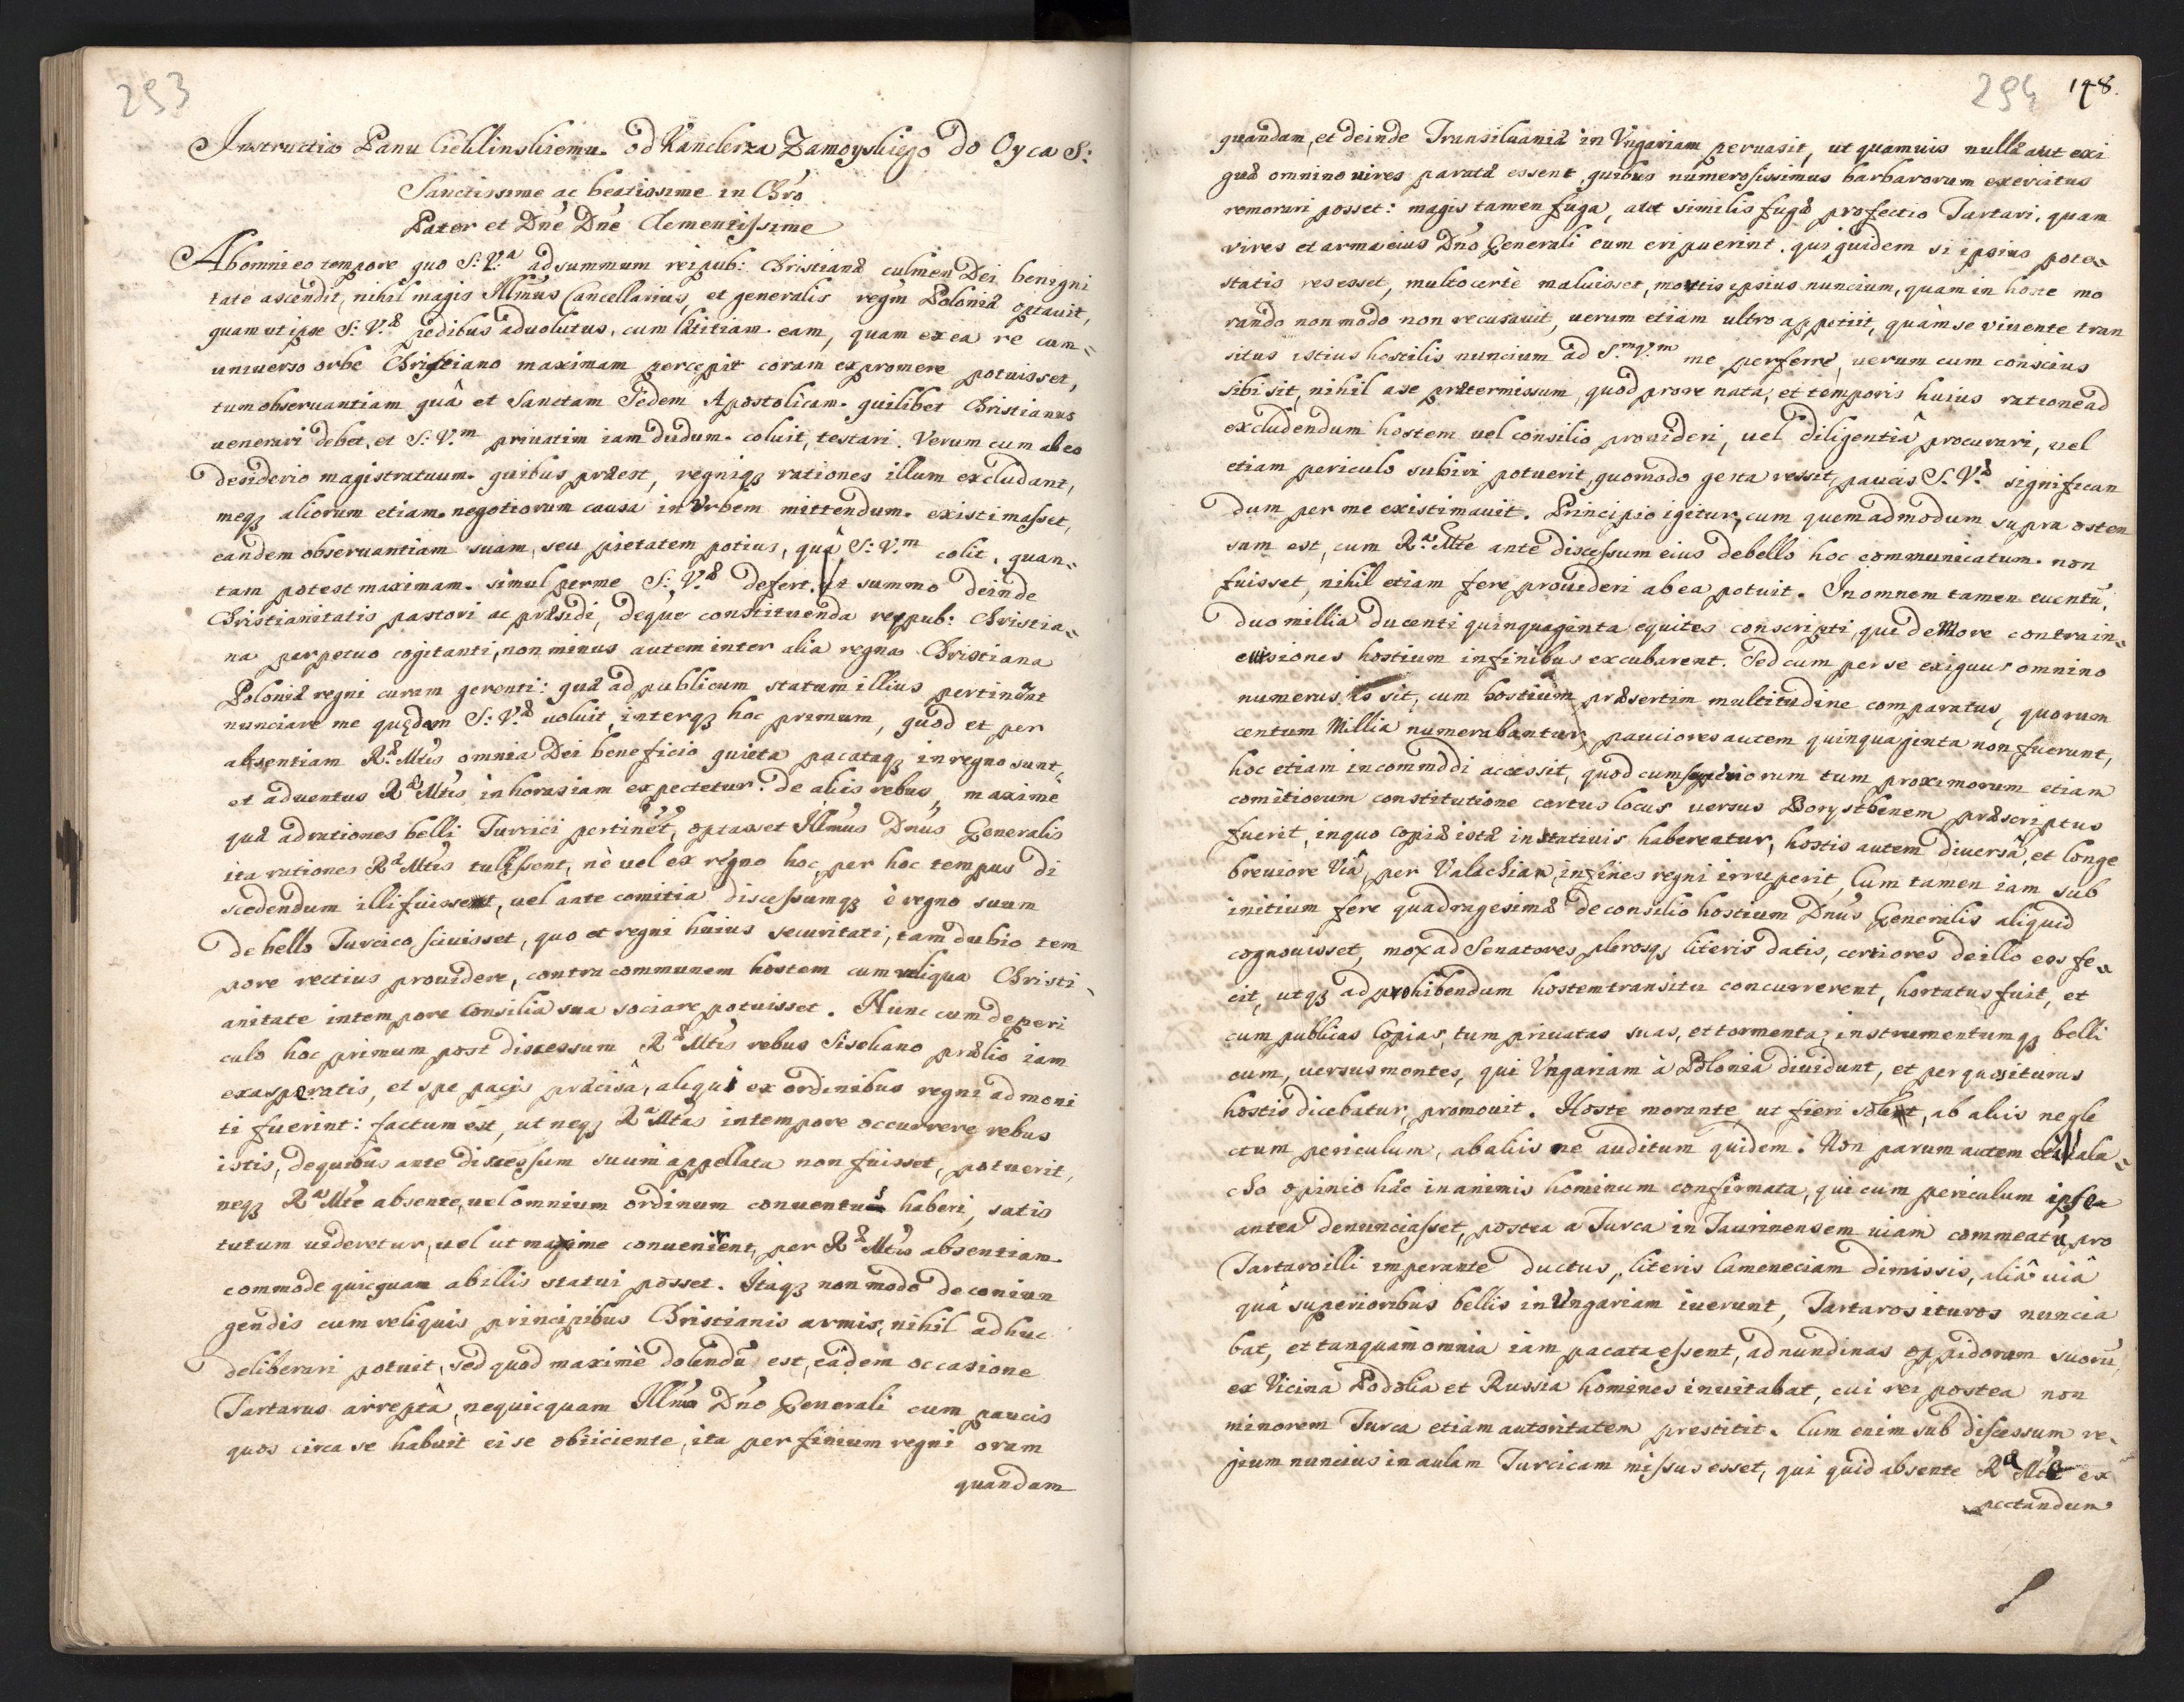 293
Instructia Panu Cieklinskiemu od Kanclerza Zamoyskiego do Oyca S:
Sanctissime ac beatissime in Chro
Pater et Dne Dne Clementissime
Ab omni eo tempore quo S: V.a ad summum reipub: Christianæ culmen Dei benigni
tate ascendit, nihil magis Illmus Cancellarius, et generalis regni Poloniæ optauit,
quam ut ipse S: V.æ pedibus aduolutus, cum lætitiam eam, quam ex ea re cum
uniuerso orbe Christiano maximam percepit coram expromere potuisset,
tum obseruantiam quâ et Sanctam Sedem Apostolicam quilibet Christianus
uenerari debet, et S: V.m priuatim iam dudum coluit, testari. Verum cum ab eo
desiderio magistratuum quibus præest, regniq; rationes illum excludant,
meq; aliorum etiam negotiorum causa in Vrbem mittendum existimasset,
eandem obseruantiam suam, seu pietatem potius, quâ S: V.m colit, quan=
tam potest maximam simul per me S: V.æ defert, ut summo deinde
Christianitatis pastori ac præsidi, deque constituenda repub: Christia=
na perpetuo cogitanti, non minus autem inter alia regna Christiana
Poloniæ regni curam gerenti: quæ ad publicum statum illius pertinent
nunciare me quędam S: V.æ uoluit, interq; hoc primum, quod et per
absentiam R.æ Mtis omnia Dei beneficio quieta pacataq; in regno sunt,
et aduentus Ræ Mtis in horas iam expectetur. De aliis rebus, maxime
quæ ad rationes belli Turcici pertinet, optasset Illmus Dnus Generalis
ita rationes Ræ Mtis tulissent, ne uel ex regno hoc, per hoc tempus di
scedendum illi fuisset, uel ante comitia discessumq; è regno suum
de bello Turcico sciuisset, quo et regni huius securitati, tam dubio tem
pore rectius prouidere, contra communem hostem cum reliqua Christi=
anitate in tempore consilia sua sociare potuisset. Nunc cum de peri
culo hoc primum post discessum Ræ Mtis rebus Sisekano prælio iam
exasperatis, et spe pacis præcisâ, aliqui ex ordinibus regni admoni
ti fuerint: factum est, ut neq; Ra Mtas in tempore occurrere rebus
istis, de quibus ante discessum suum appellata non fuisset, potuerit,
neq; Ra Mte absente, uel omnium ordinum conuentus haberi, satis
tutum uideretur, uel ut maxime conuenirent, per Ræ Mtis absentiam
commode quicquam ab illis statui posset. Itaq; non modo de coniun
gendis cum reliquis principibus Christianis armis, nihil adhuc
deliberari potuit, sed quod maxime dolendu est, eâdem occasione
Tartarus arreptâ, nequicquam Illmo Dno Generali cum paucis
quos circa se habuit ei se obiiciente, ita per finium regni oram
quandam
294 148.
quandam, et deinde Transiluaniæ in Vngariam peruasit, ut quamuis nullæ aut exi
guæ omnino uires paratæ essent, quibus numerosissimus barbarorum exercitus
remorari posset: magis tamen fuga, aut similis fugæ profectio Tartari, quam
vires et arma eius Dno Generali eum eripuerint. qui quidem si ipsius pote=
statis res esset, multo certè maluisset, mortis ipsius nuncium, quam in hoste mo
rando non modo non recusauit, uerum etiam ultro appetiit, quàm se viuente tran
situs istius hostilis nuncium ad S.m V.m me perferre, uerum cum conscius
sibi sit, nihil a se prætermissum, quod pro re nata, et temporis huius ratione ad
excludendum hostem uel consilio prouideri, uel diligentiâ procurari, uel
etiam periculo subiri potuerit, quomodo gesta res sit, paucis S. V.æ significan
dum per me existimauit. Principio igitur, cum quemadmodum supra osten
sam est, cum R.a Mte ante discessum eius de bello hoc communicatum non
fuisset, nihil etiam fere prouideri ab ea potuit. In omnem tamen euentu,
duo millia ducenti quinquaginta equites conscripti, qui de More contra in=
cursiones hostium in finibus excubarent. Sed cum per se exiguus omnino
numerus is sit, cum hostium præsertim multitudine comparatus, quorum
centum Millia numerabantur, pauciores autem quinquaginta non fuerunt,
hoc etiam incommodi accessit, quod cum superiorum tum proximorum etiam
comitiorum constitutione certus locus uersus Borysthenem præscriptus
fuerit, in quo copiæ istæ in statiuis haberentur, hostis autem diuersa, et longe
breuiore Viâ, per Valachiam, in fines regni irruperit, Cum tamen iam sub
initium fere quadragesimæ de consilio hostium Dnus Generalis aliquid
cognouisset, mox ad Senatores plerosq; literis datis, certiores de illo eos fe=
cit, utq; ad prohibendum hostem transitu concurrerent, hortatus fuit, et
cum publicas Copias, tum priuatas suas, et tormenta, instrumentumq; belli
cum, uersus montes, qui Vngariam à Polonia diuidunt, et per quos iturus
hostis dicebatur, promouit. Hoste morante, ut fieri solet, ab aliis negle
ctum periculum, ab aliis ne auditum quidem. Non parum autem Vala=
cho opinio hæc in animis hominum confirmata, qui cum periculum ipse
antea denunciasset, postea a Turca in Taurinensem uiam commeatu, pro
Tartaro illi imperante ductus, literis Cameneciam dimissis, aliâ uiâ
quâ superioribus bellis in Vngariam iuerunt, Tartaros ituros nuncia
bat, et tanquam omnia iam pacata essent, ad nundinas oppidorum suoru,
ex Vicina Podolia et Russia homines inuitabat, cui rei postea non
minorem Turca etiam autoritatem prestitit. Cum enim sub discessum re=
gium nuncius in aulam Turcicam missus esset, qui quid absente Ra Mte ex
pectandum